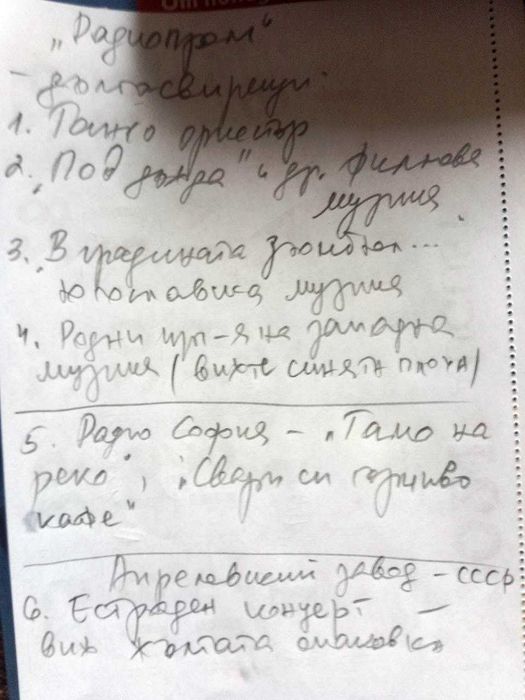 „Радиопром"
- дългосвирещи:
1. Танго оркестър
2. „Под дъжда" и др. филмова
музика
3. „В градината зюмбюл...
югославска музика
4. Родни изп-я на западна
музика (вижте синята плоча)
5. Радио София - „Тамо на
реко", „Свари си горчиво
кафе"
Апрелевский завод - СССР
6. Естраден концерт -
виж жълтата опаковка